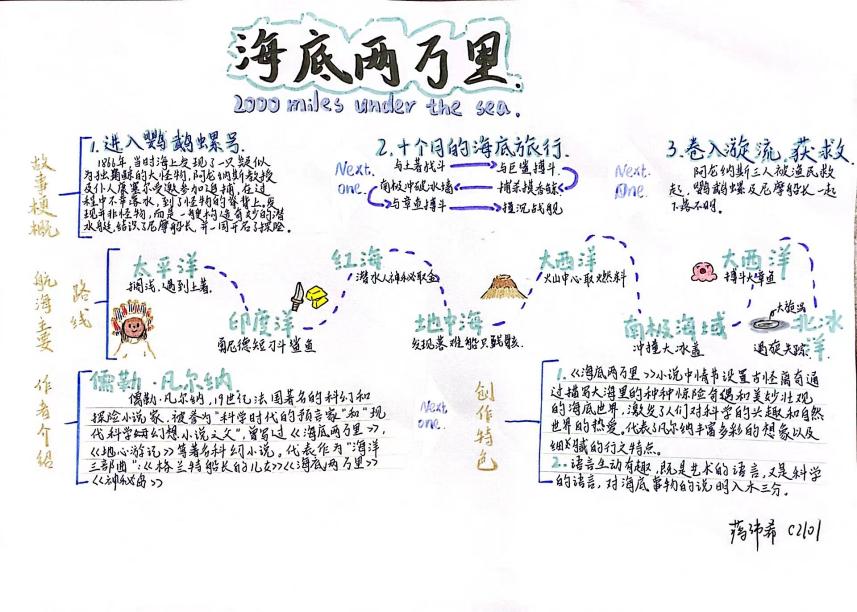 海底两万里.
2000 miles under the sea.
故事梗概
1.进入鹦鹉螺号.
1866年,当时海上发现了一只疑似
为独角鲸的大怪物,阿龙纳斯教授
及仆人康塞尔受邀参加追捕,在过
程中不幸落水,到了怪物的脊背上,发
现并非怪物,而是一艘构造奇妙的潜
水艇,结识了尼摩船长,并一同开启了探险。
Next.
one.
2.十个月的海底旅行.
与土著战斗
与巨鲨搏斗.
捕采摸香鲸
南极冲破冰墙
与章鱼搏斗
撞沉战舰
Next.
One.
3.卷入漩流,获救.
阿龙纳斯三人被渔民救
起,鹦鹉螺及尼摩船长一起
下落不明.
航海主要
路线
太平洋
搁浅,遇到土著.
印度洋
尼德短刀斗鲨鱼
红海
潜水人神秘取金
地中海
发现落难船只骸骸.
大西洋
火山中心取燃料
南极海域
冲撞大冰盖
大西洋
搏斗大章鱼
大旋涡
北冰洋
遇旋失踪.
作者介绍
儒勒·凡尔纳
儒勒·凡尔纳,19世纪法国著名的科幻和
探险小说家,被誉为"科学时代的预言家"和"现
代科学幻想小说之父",曾写过《海底两万里》,
《地心游记》等著名科幻小说。代表作为"海洋
三部曲":《格兰特船长的儿女》《海底两万里》
《神秘岛》
Next
one.
创作特色
1.《海底两万里》小说中情节设置古怪离奇通
过描写大海里的种种惊险奇遇和美妙壮观
的海底世界,激发了人们对科学的兴趣和自然
世界的热爱,代表了凡尔纳丰富多彩的想象以及
细腻的行文特点。
2.语言生动有趣,既是艺术的语言,又是科学
的语言,对海底事物的说明入木三分。
C2101